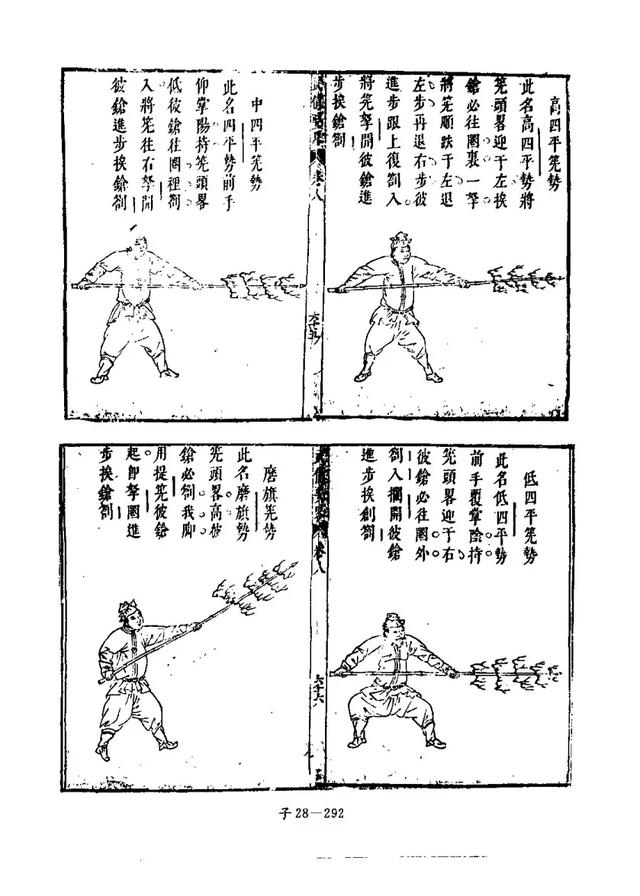 高四平筅勢
此名高四平勢將
筅頭畧迎于左挨
鎗必往圈裏一拏
將筅順跌于左退
左步再退右步彼
進步跟上復劄入
將筅拏開彼鎗進
步挨鎗劄
卷八
中四平筅勢
此名四平勢前手
仰掌陽持筅頭畧
低彼鎗往圈裡劄
入將筅往右拏開
彼鎗進步挨鎗劄
低四平筅勢
此名低四平勢
前手覆掌陰持
筅頭畧迎于右
彼鎗必往圈外
劄入攔開彼鎗
進步挨創劄
卷八
六十六
磨旗筅勢
此名磨旗勢
筅頭畧高彼
鎗必劄我脚
用提筅彼鎗
起即拏圈進
步挨鎗劄
子28－292